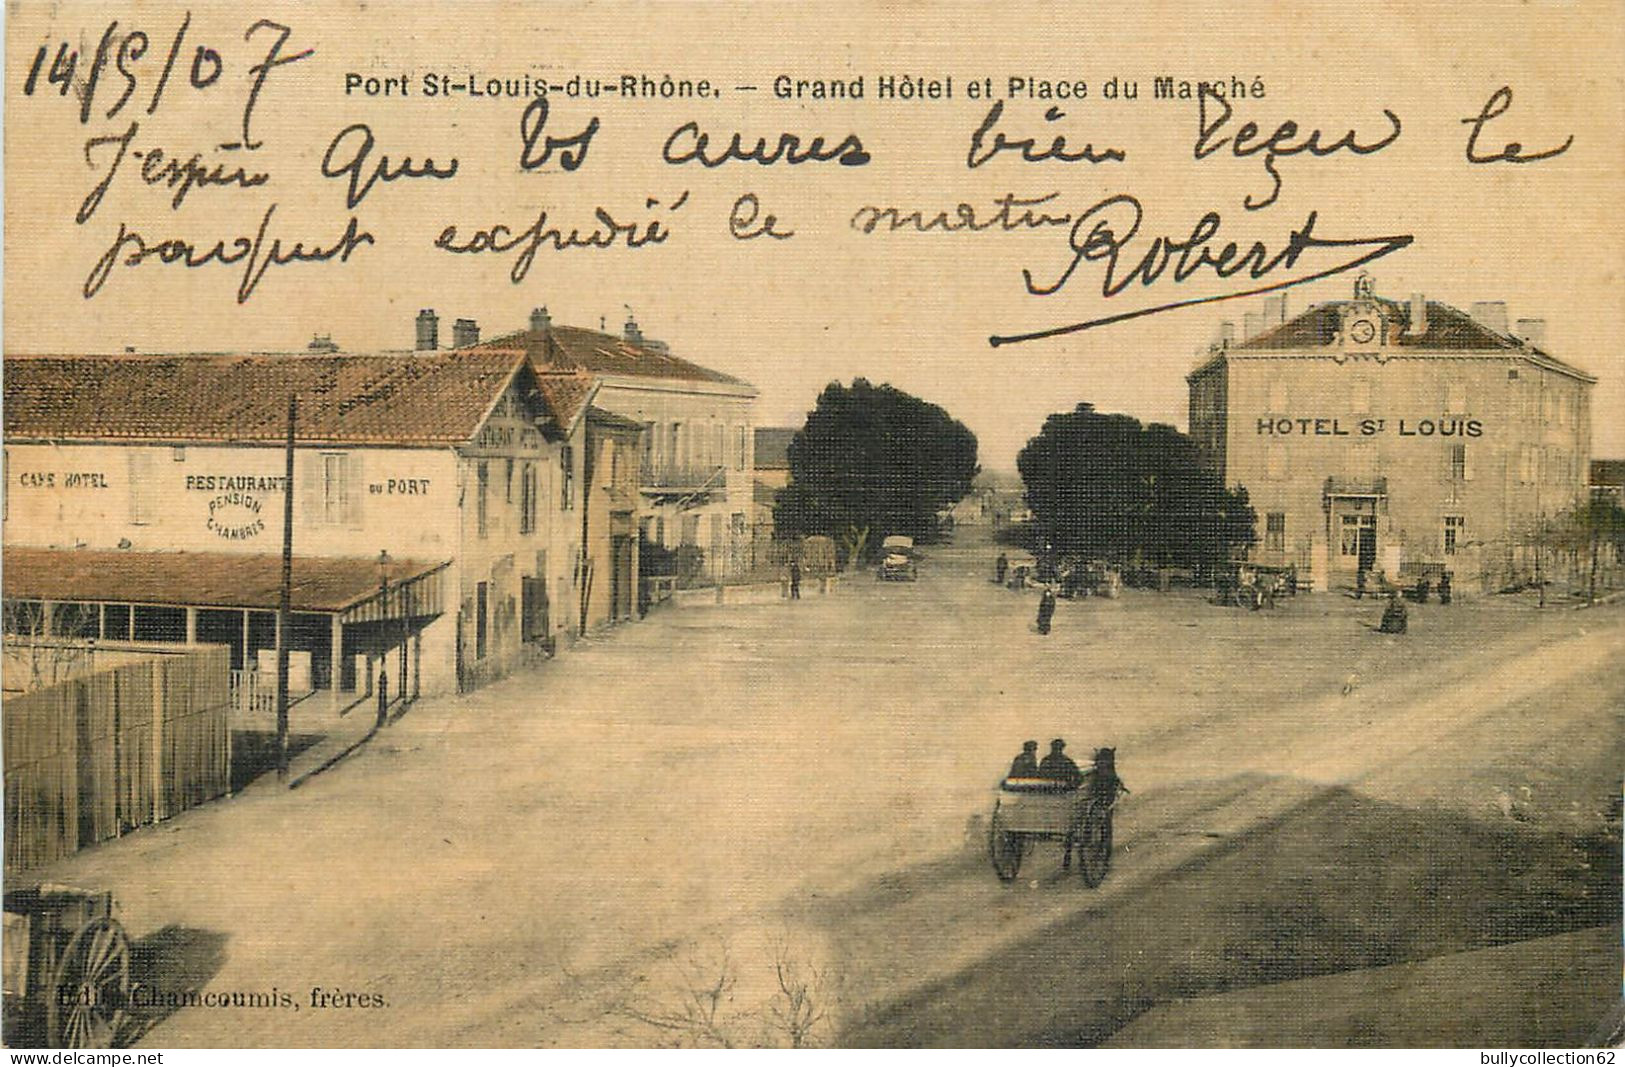 14/5/07
Port St-Louis-du-Rhône. — Grand Hôtel et Place du Marché
J'espère que vs aures bien reçu le
paquet expedié ce matin
Robert
HOTEL ST LOUIS
RESTAURANT HOTEL
CAFE HOTEL RESTAURANT DU PORT
PENSION
CHAMBRES
Edit. Chamcoumis, frères.
delcampe.net
bullycollection62